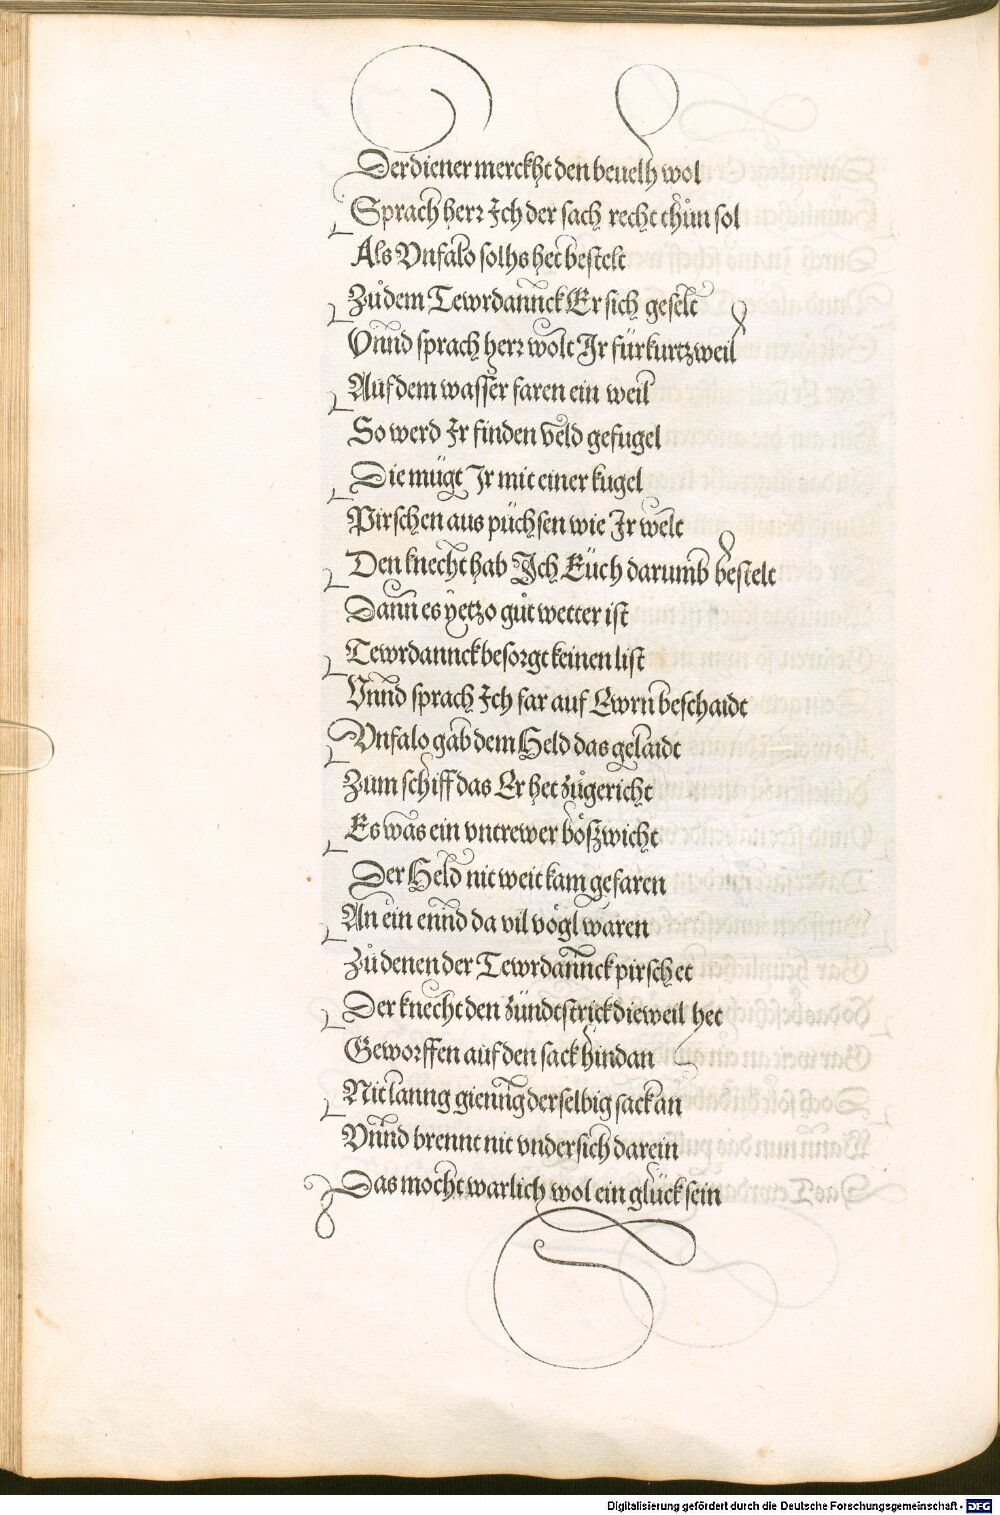 Der diener merckht den beuelh wol
Sprach herr Ich der sach recht thůn sol
Als Vnfalo solhs het bestelt
Zů dem Tewrdannck Er sich geselt
Vnnd sprach herr wolt Ir für kurtzweil
Auf dem wasser faren ein weil
So werd Ir finden veld gefugel
Die mügt Ir mit einer kugel
Pirschen aus püchsen wie Ir welt
Den knecht hab Ich Eüch darumb bestelt
Dann es yetzo gůt wetter ist
Tewrdannck besorgt keinen list
Vnnd sprach Ich far auf Ewrn beschaidt
Vnfalo gab dem Held das gelaidt
Zum schiff das Er het zůgericht
Es was ein vntrewer bößwicht
Der Held nit weit kam gefaren
An ein ennd da vil vögl waren
Zů denen der Tewrdannck pirschet
Der knecht den zündtstrick dieweil het
Geworffen auf den sack hindan
Nit lanng gienng derselbig sack an
Vnnd brennt nit vndersich darein
Das mocht warlich wol ein glück sein
Digitalisierung gefördert durch die Deutsche Forschungsgemeinschaft - DFG